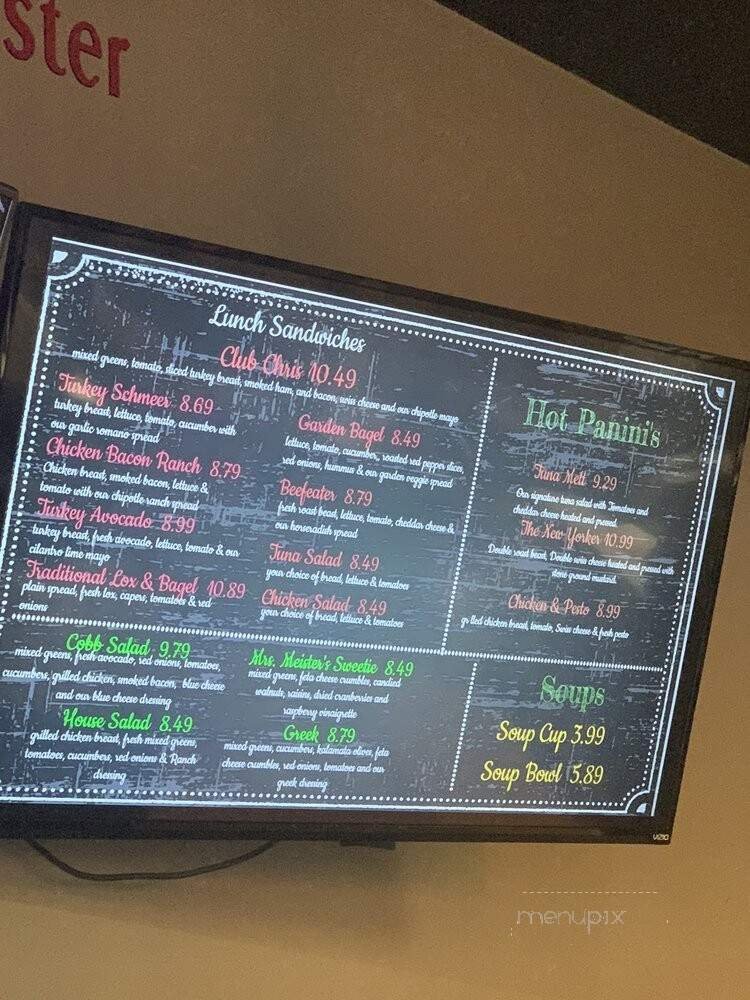 ster
Lunch Sandwiches
Club Chris 10.49
mixed greens, tomato, sliced turkey breast, smoked ham, and bacon, swiss cheese and our chipotle mayo
Turkey Schmeer 8.69
turkey breast, lettuce, tomato, cucumber with
our garlic romano spread
Chicken Bacon Ranch 8.79
Chicken breast, smoked bacon, lettuce &
tomato with our chipotle ranch spread
Turkey Avocado 8.99
turkey breast, fresh avocado, lettuce, tomato & our
cilantro lime mayo
Traditional Lox & Bagel 10.89
plain spread, fresh lox, capers, tomatoes & red
onions
Garden Bagel 8.49
lettuce, tomato, cucumber, roasted red pepper slices,
red onions, hummus & our garden veggie spread
Beefeater 8.79
fresh roast beef, lettuce, tomato, cheddar cheese &
our horseradish spread
Tuna Salad 8.49
your choice of bread, lettuce & tomatoes
Chicken Salad 8.49
your choice of bread, lettuce & tomatoes
Hot Panini's
Tuna Melt 9.29
Our signature tuna salad with Tomatoes and
cheddar cheese heated and pressed
The New Yorker 10.99
Double roast beast, Double swiss cheese heated and pressed with
stone ground mustard
Chicken & Pesto 8.99
grilled chicken breast, tomato, Swiss cheese & fresh pesto
Cobb Salad 9.79
mixed greens, fresh avocado, red onions, tomatoes,
cucumbers, grilled chicken, smoked bacon, blue cheese
and our blue cheese dressing
House Salad 8.49
grilled chicken breast, fresh mixed greens,
tomatoes, cucumbers, red onions & Ranch
dressing
Mrs. Meister's Sweetie 8.49
mixed greens, feta cheese crumbles, candied
walnuts, raisins, dried cranberries and
raspberry vinaigrette
Greek 8.79
mixed greens, cucumbers, kalamata olives, feta
cheese crumbles, red onions, tomatoes and our
greek dressing
Soups
Soup Cup 3.99
Soup Bowl 5.89
VIZIO
menupix